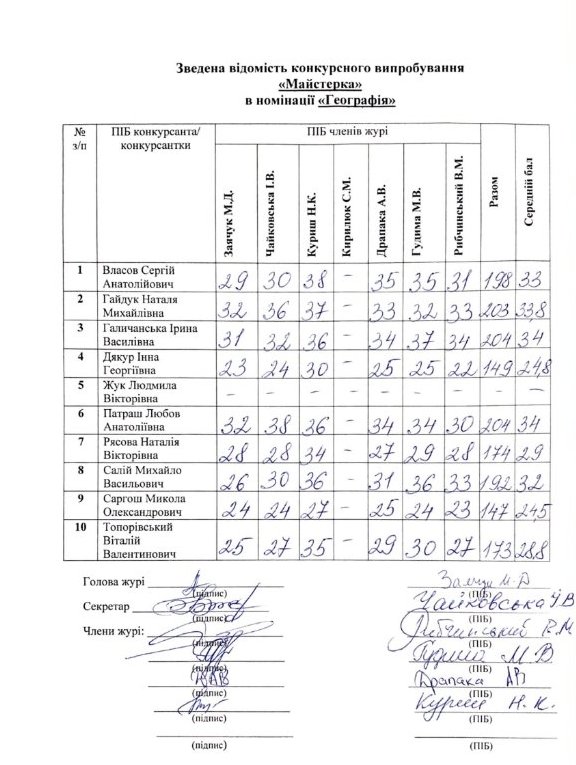 Зведена відомість конкурсного випробування
«Майстерка»
в номінації «Географія»
№ з/п ПІБ конкурсанта/ конкурсантки ПІБ членів журі Разом Середній бал
Заячук М.Д. Чайковська І.В. Куриш Н.К. Кирилюк С.М. Драпака А.В. Гудима М.В. Рибчинський В.М.
1 Власов Сергій Анатолійович 29 30 38 - 35 35 31 198 33
2 Гайдук Наталя Михайлівна 32 36 37 - 33 32 33 203 338
3 Галичанська Ірина Василівна 31 32 36 - 34 37 34 204 34
4 Дякур Інна Георгіївна 23 24 30 - 25 25 22 149 248
5 Жук Людмила Вікторівна - - - - - - - - -
6 Патраш Любов Анатоліївна 32 38 36 - 34 34 30 204 34
7 Рясова Наталія Вікторівна 28 28 34 - 27 29 28 174 29
8 Салій Михайло Васильович 26 30 36 - 31 36 33 192 32
9 Саргош Микола Олександрович 24 24 27 - 25 24 23 147 245
10 Топорівський Віталій Валентинович 25 27 35 - 29 30 27 173 288
Голова журі
(підпис) (ПІБ)
Секретар Чайковська І В
(підпис) (ПІБ)
Члени журі: Рибчинський В.М
(підпис) (ПІБ)
Гудима М. В
(підпис) (ПІБ)
Драпака АВ
(підпис) (ПІБ)
Куриш Н. К.
(підпис) (ПІБ)
(підпис) (ПІБ)